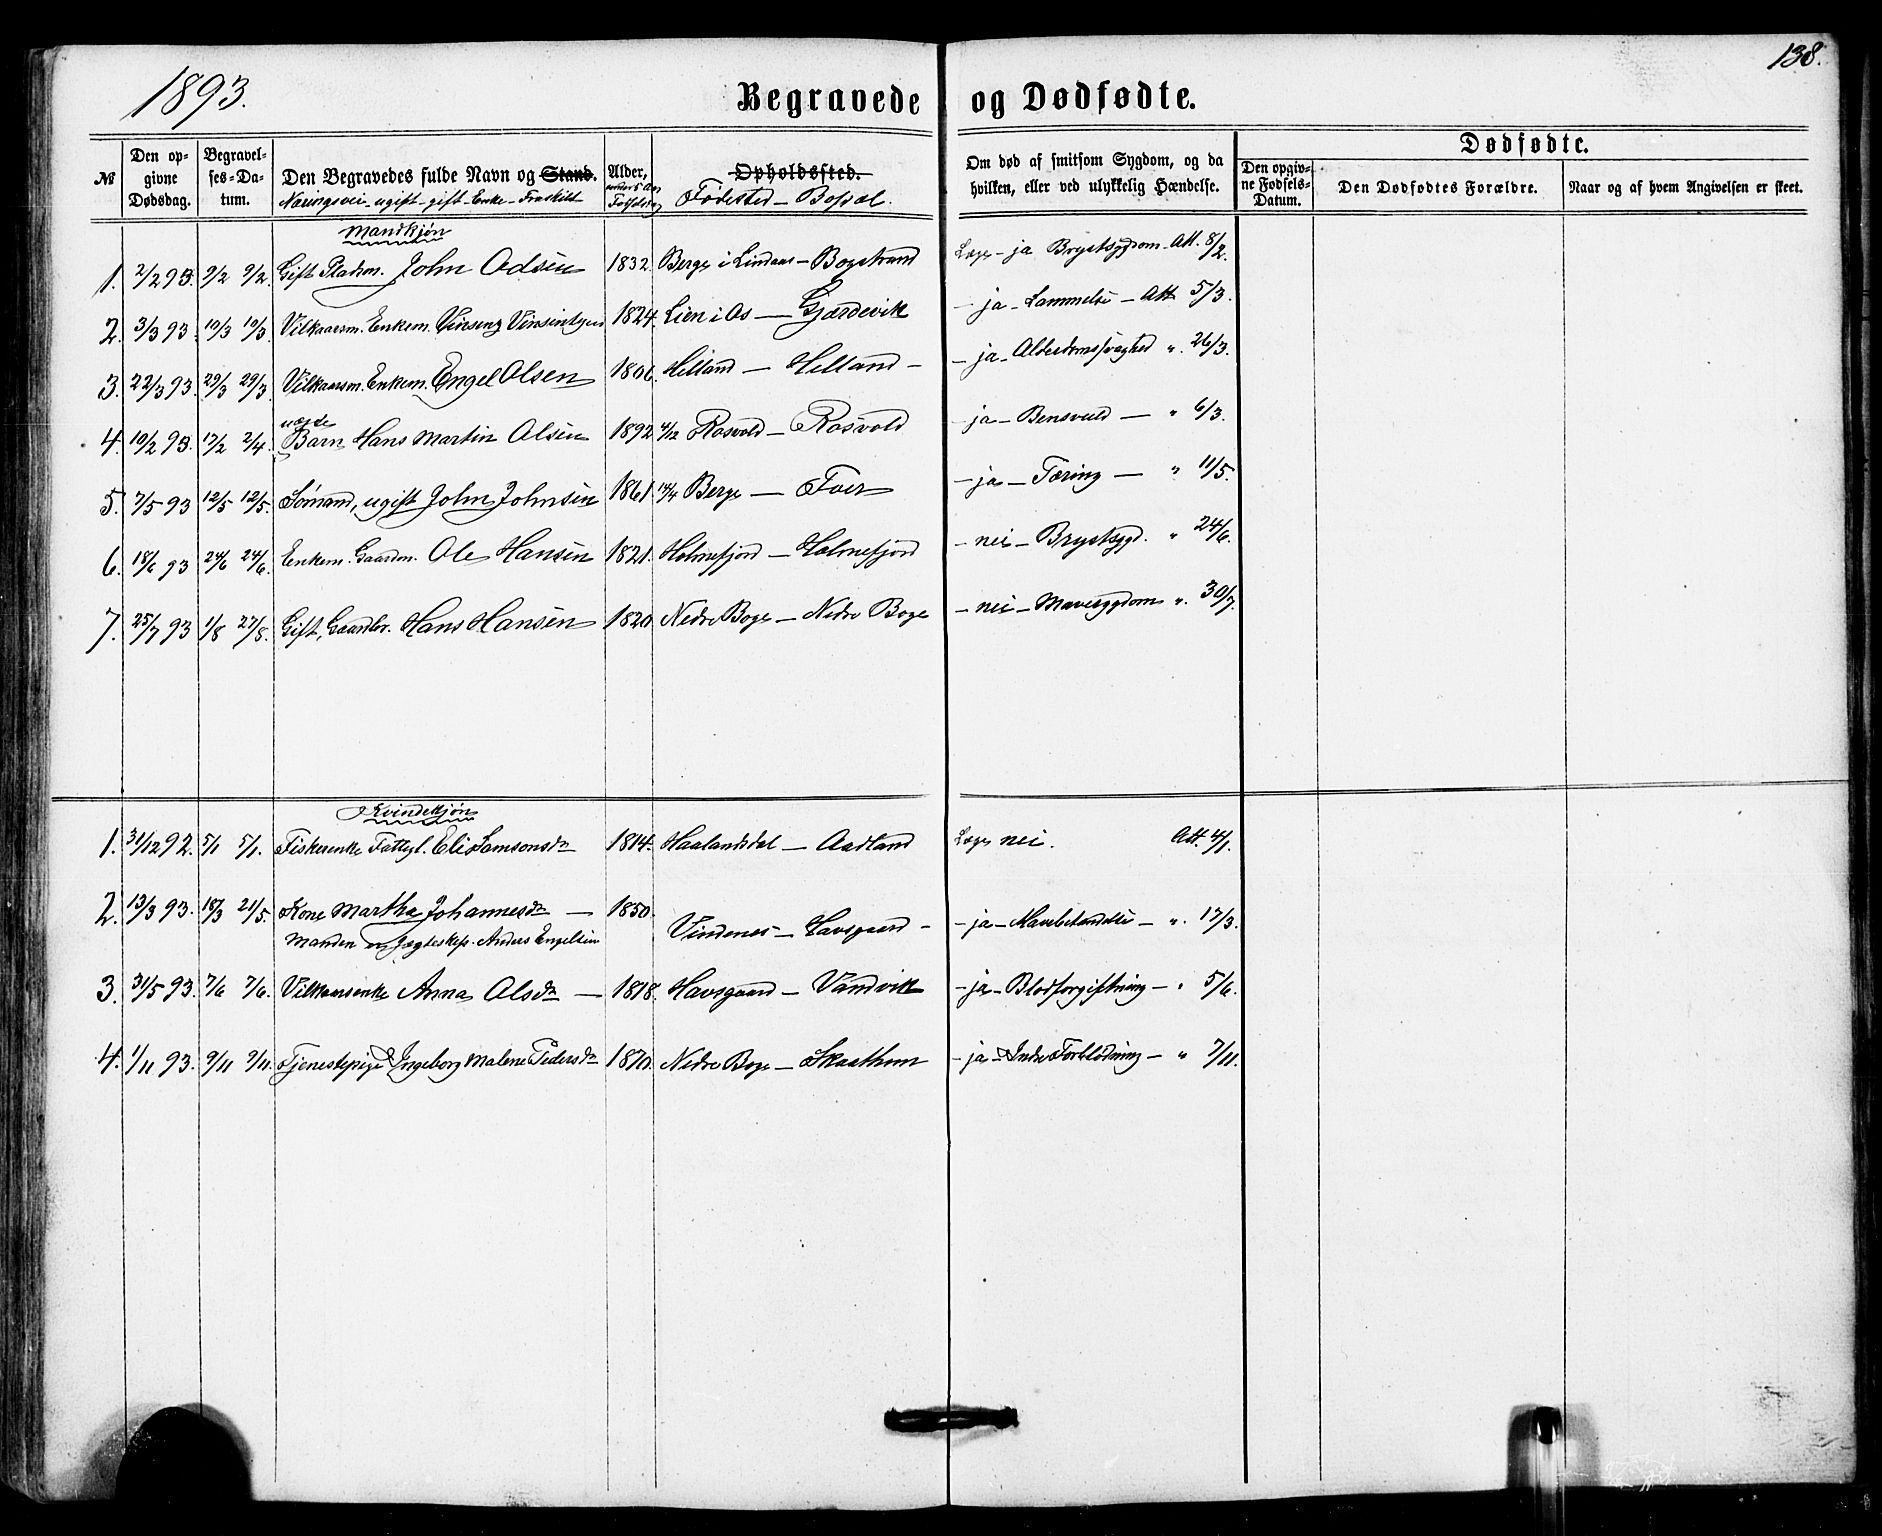 1893.
138.
Begravede og Dødfødte.
№
Den opgivne Dødsdag.
Begravelses-Datum.
Den Begravedes fulde Navn og Stand.
Næringsvei - ugift - gift - Enke - Fraskilt
Alder,
under 5 Aar Fødselsdag
Opholdssted.
Fødested - Bopæl.
Om død af smitsom Sygdom, og da hvilken, eller ved ulykkelig Hændelse.
Dødfødte.
Den opgivne Fødsels-Datum.
Den Dødfødtes Forældre.
Naar og af hvem Angivelsen er skeet.
Mandkjøn
1. 2/2 93. 9/2 9/2. Gift Pladsm. John Odsen 1832. Berge i Lindaas - Bogstrand Læge - ja Brystsygdom - Att. 8/2.
2. 3/3 93. 10/3 10/3. Vilkaarsm. Enkem. 1824. Lien i Os - Gjærdevik - ja - Lammelse - Att 5/3.
3. 22/3 93. 29/3 29/3. Vilkaarsm. Enkem. Engel Olsen 1806. Helland - Helland - - ja - Alderdomssvaghed " 26/3.
4. 10/2 93. 17/2 2/4. uægte Barn Hans Martin Olsen 1892 4/12 Rosvold - Rosvold - ja - Bensvuld - " 6/3.
5. 7/5 93 12/5 12/5. Sømand, ugift John Johnsen 1861. 14/4 Berge - Foer - ja - Tæring - " 11/5.
6. 18/6 93 24/6 24/6. Enkem. Gaardm. Ole Hansen 1821. Holmefjord - Holmefjord - nei - Brystsygd. " 24/6.
7. 25/7 93 1/8 27/8. Gift, Gaardbr. Hans Hansen 1820 Nedre Boge - Nedre Boge - nei - Mavesygdom " 30/7.
Kvindekjøn
1. 31/12 92. 5/1 5/1. Fiskerenke Fattigl. Eli Samsonsdr 1814. Haalandsdal - Aadland Læge nei. Att. 4/1.
2. 13/3 93. 18/3 21/5. Kone Martha Johannesdr - 1850. Vindenes - Havsgaard - - ja - Mavebetændelse - " 17/3.
Manden er Jægteskip. Anders Engelsen
3. 31/5 93. 7/6 7/6. Vilkaarsenke Anna Olsdr - 1818. Havsgaard - Vandvik - ja - Blodforgiftning - " 5/6.
4. 1/11 93. 9/11 9/11. Tjenestepige Ingeborg Malene Pedersdr 1870. Nedre Boge - Skaathun - ja - Indre Forblødning - " 7/11.